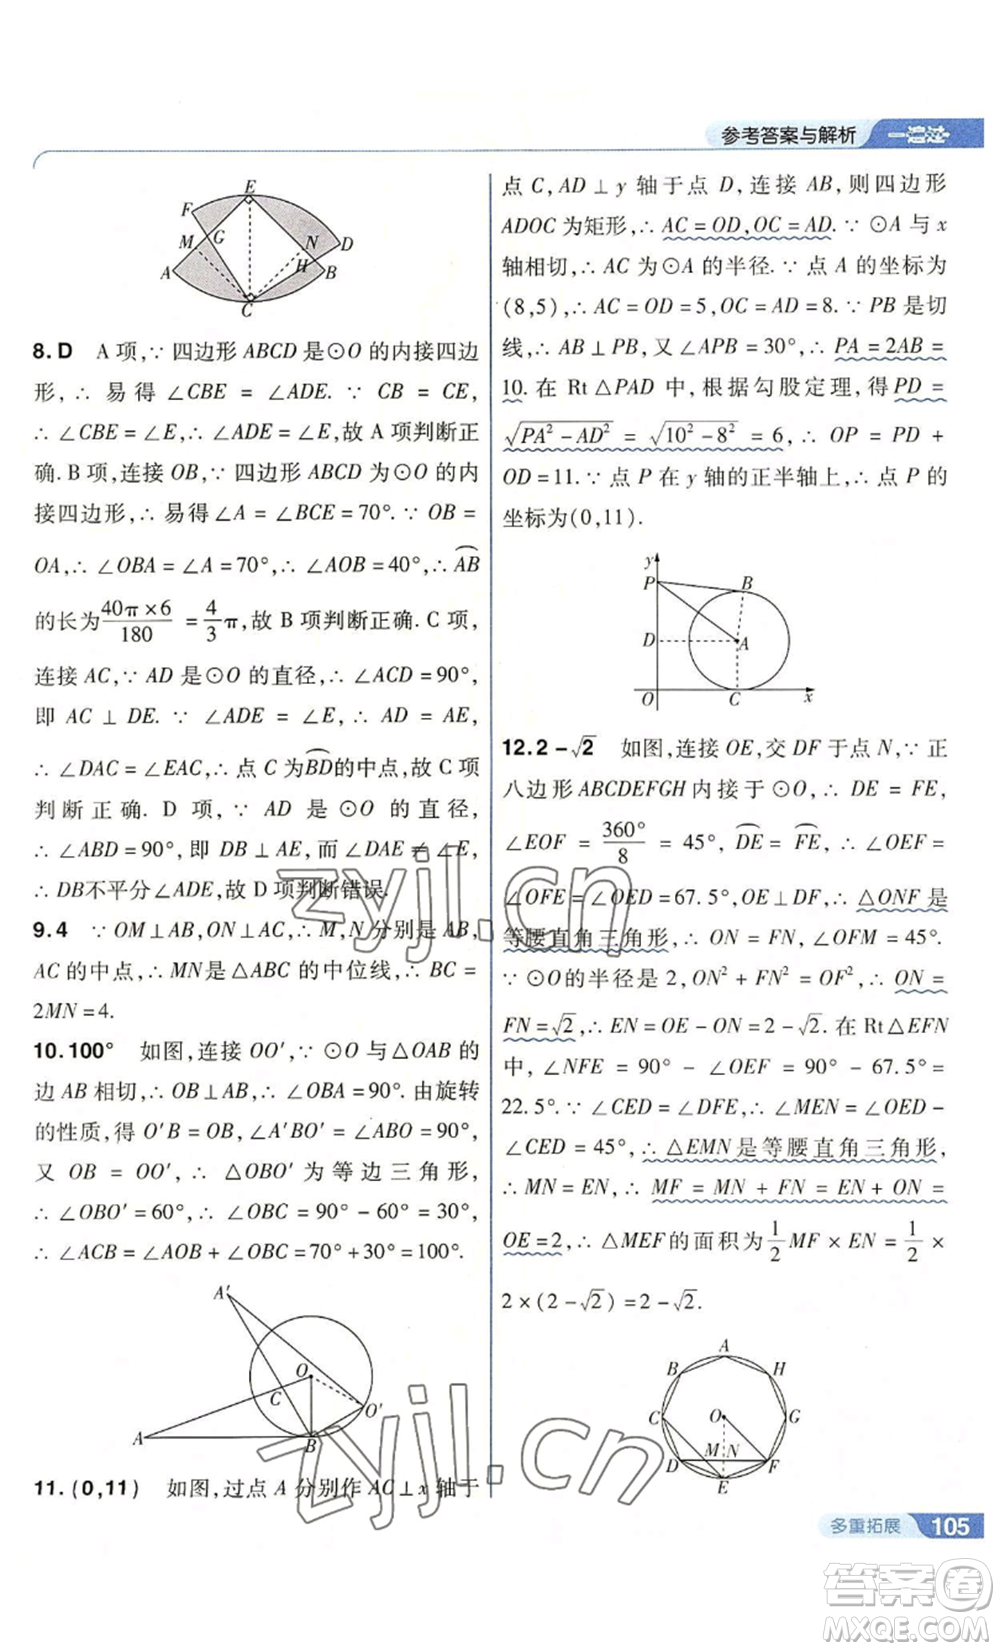 参考答案与解析
E
F
M
G
N
D
A
H
B
C
8.D A 项,∵ 四边形 ABCD 是⊙O 的内接四边
形,∴ 易得 ∠CBE = ∠ADE. ∵ CB = CE,
∴ ∠CBE = ∠E,∴ ∠ADE = ∠E,故 A 项判断正
确. B 项,连接 OB,∵ 四边形 ABCD 为⊙O 的内
接四边形,∴ 易得∠A = ∠BCE = 70°. ∵ OB =
OA,∴ ∠OBA = ∠A = 70°,∴ ∠AOB = 40°,∴ \overset{\frown}{AB}
的长为\frac{40π×6}{180} = \frac{4}{3}π,故 B 项判断正确. C 项,
连接 AC,∵ AD 是⊙O 的直径,∴ ∠ACD = 90°,
即 AC ⊥ DE. ∵ ∠ADE = ∠E,∴ AD = AE,
∴ ∠DAC = ∠EAC,∴ 点 C 为\overset{\frown}{BD}的中点,故 C 项
判断正确. D 项,∵ AD 是 ⊙O 的直径,
∴ ∠ABD = 90°,即 DB ⊥ AE,而 ∠DAE ≠ ∠E,
∴ DB不平分∠ADE,故 D 项判断错误.
9.4 ∵ OM⊥AB,ON⊥AC,∴ M,N 分别是 AB,
AC 的中点,∴ MN是△ABC 的中位线,∴ BC =
2MN = 4.
10.100° 如图,连接 OO′,∵ ⊙O 与△OAB 的
边 AB 相切,∴ OB⊥AB,∴ ∠OBA = 90°. 由旋转
的性质,得 O′B = OB,∠A′BO′ = ∠ABO = 90°,
又 OB = OO′,∴ △OBO′ 为等边三角形,
∴ ∠OBO′ = 60°,∴ ∠OBC = 90° - 60° = 30°,
∴ ∠ACB = ∠AOB + ∠OBC = 70° + 30° = 100°.
A′
O
C
O′
A
B
11.(0,11) 如图,过点 A 分别作 AC⊥x 轴于
点 C,AD⊥y 轴于点 D,连接 AB,则四边形
ADOC 为矩形,∴ AC = OD,OC = AD. ∵ ⊙A 与 x
轴相切,∴ AC 为⊙A 的半径. ∵ 点 A 的坐标为
(8,5),∴ AC = OD = 5,OC = AD = 8. ∵ PB 是切
线,∴ AB⊥PB,又∠APB = 30°,∴ PA = 2AB =
10. 在 Rt△PAD 中,根据勾股定理,得 PD =
\sqrt{PA²-AD²} = \sqrt{10²-8²} = 6,∴ OP = PD +
OD = 11. ∵ 点 P 在 y 轴的正半轴上,∴ 点 P 的
坐标为(0,11).
y
P
B
D
A
O
C
x
12.2-√2 如图,连接 OE,交 DF 于点 N,∵ 正
八边形 ABCDEFGH 内接于⊙O,∴ DE = FE,
∠EOF = \frac{360°}{8} = 45°,\overset{\frown}{DE} = \overset{\frown}{FE},∴ ∠OEF =
∠OFE = ∠OED = 67.5°,OE⊥DF,∴ △ONF 是
等腰直角三角形,∴ ON = FN,∠OFM = 45°.
∵ ⊙O 的半径是 2,ON² + FN² = OF²,∴ ON =
FN = √2,∴ EN = OE - ON = 2 - √2. 在 Rt△EFN
中,∠NFE = 90° - ∠OEF = 90° - 67.5° =
22.5°. ∵ ∠CED = ∠DFE,∴ ∠MEN = ∠OED -
∠CED = 45°,∴ △EMN是等腰直角三角形,
∴ MN = EN,∴ MF = MN + FN = EN + ON =
OE = 2,∴ △MEF的面积为\frac{1}{2}MF × EN = \frac{1}{2} ×
2×(2-√2) = 2-√2.
A
B
H
C
O
G
M
N
D
F
E
多重拓展 105
zyjl.cn
zyjl.cn
答案圈
MXQE.COM